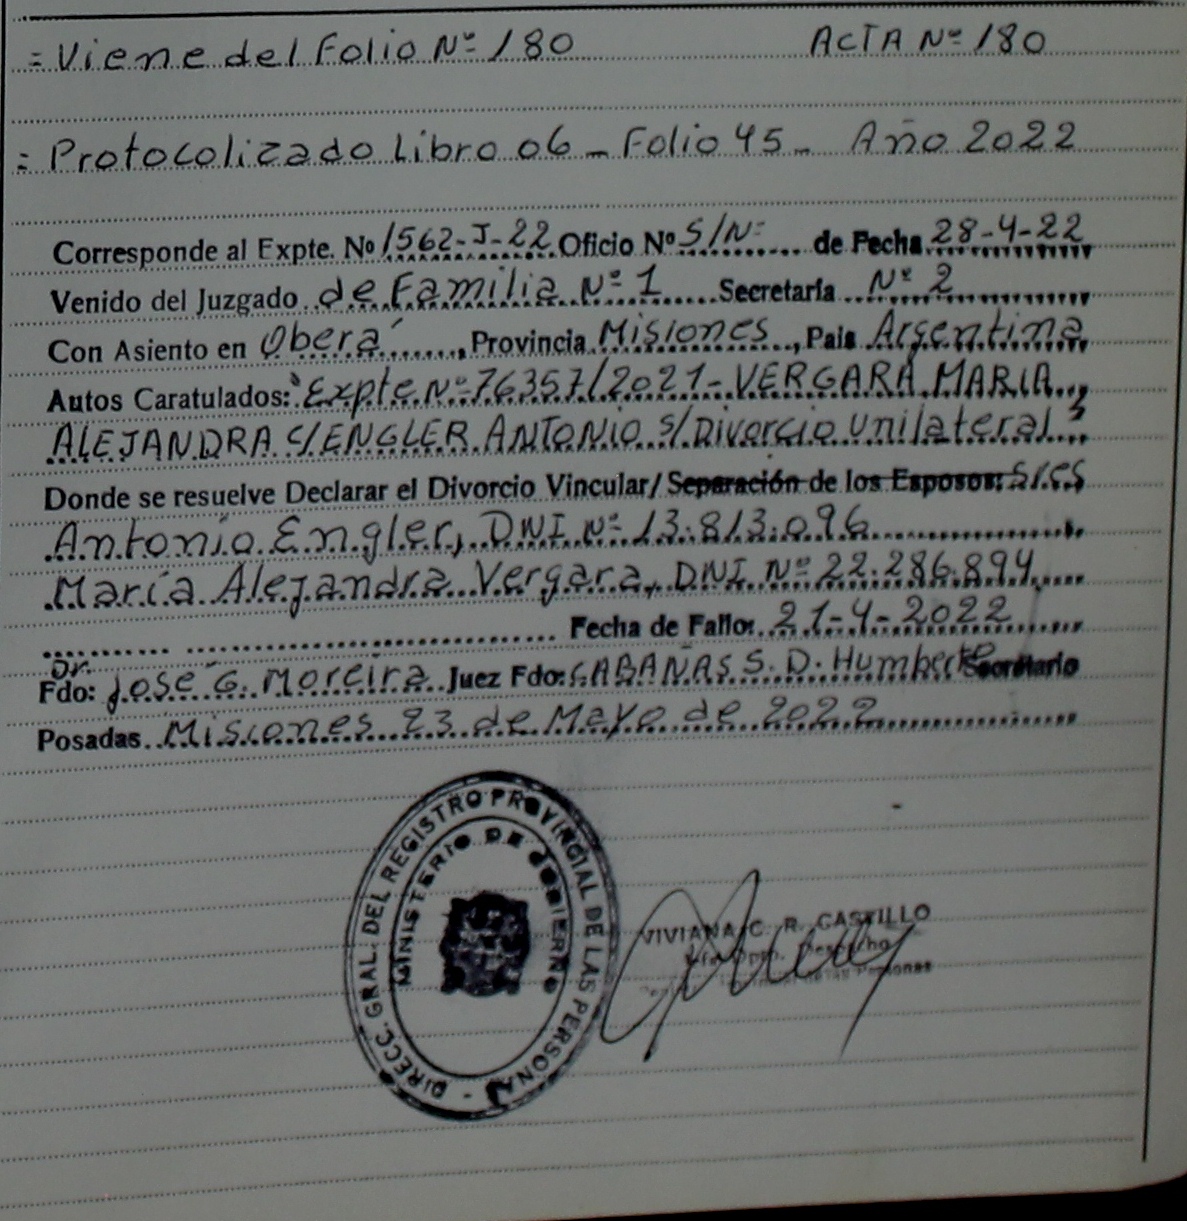 = Viene del Folio Nº 180 ACTA Nº 180
= Protocolizado Libro 06 - Folio 45 - Año 2022
Corresponde al Expte. Nº 1562-J-22 Oficio Nº S/Nº de Fecha 28-4-22
Venido del Juzgado de Familia Nº 1 Secretaría Nº 2
Con Asiento en Oberá, Provincia Misiones, Pais Argentina
Autos Caratulados: "Expte Nº 76357/2021 - VERGARA MARIA
ALEJANDRA C/ ENGLER ANTONIO S/ Divorcio Unilateral"
Donde se resuelve Declarar el Divorcio Vincular/ Separación de los Esposos: S/es
Antonio Engler, DNI Nº 13.813.096
María Alejandra Vergara, DNI Nº 22.286.894
Fecha de Fallo: 21-4-2022
Fdo: Dr. José G. Moreira Juez Fdo: CABAÑAS S. D. Humberto Secretario
Posadas Misiones 23 de Mayo de 2022
DIRECC. GRAL. DEL REGISTRO PROVINCIAL DE LAS PERSONAS
MINISTERIO DE GOBIERNO
VIVIANA C. R. CASTILLO
Despacho
Personas